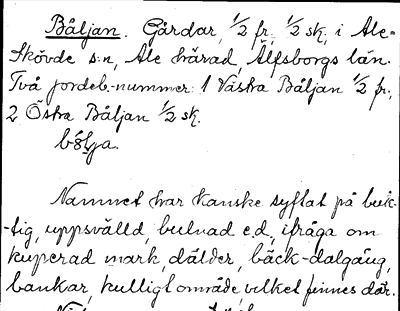 Båljan. Gårdar, 1/2 fr. 1/2 sk. i Ale=
Skövde s:n, Ale härad, Älfsborgs län.
Två jordeb.-nummer: 1 Västra Båljan 1/2 fr.,
2 Östra Båljan 1/2 sk.
bȯlja.
Namnet har kanske syftat på buk-
-tig, uppsvälld, bulnad e.d, ifråga om
kuperad mark, dälder, bäck-dalgång,
bankar, kulligt område, vilket finnes där.